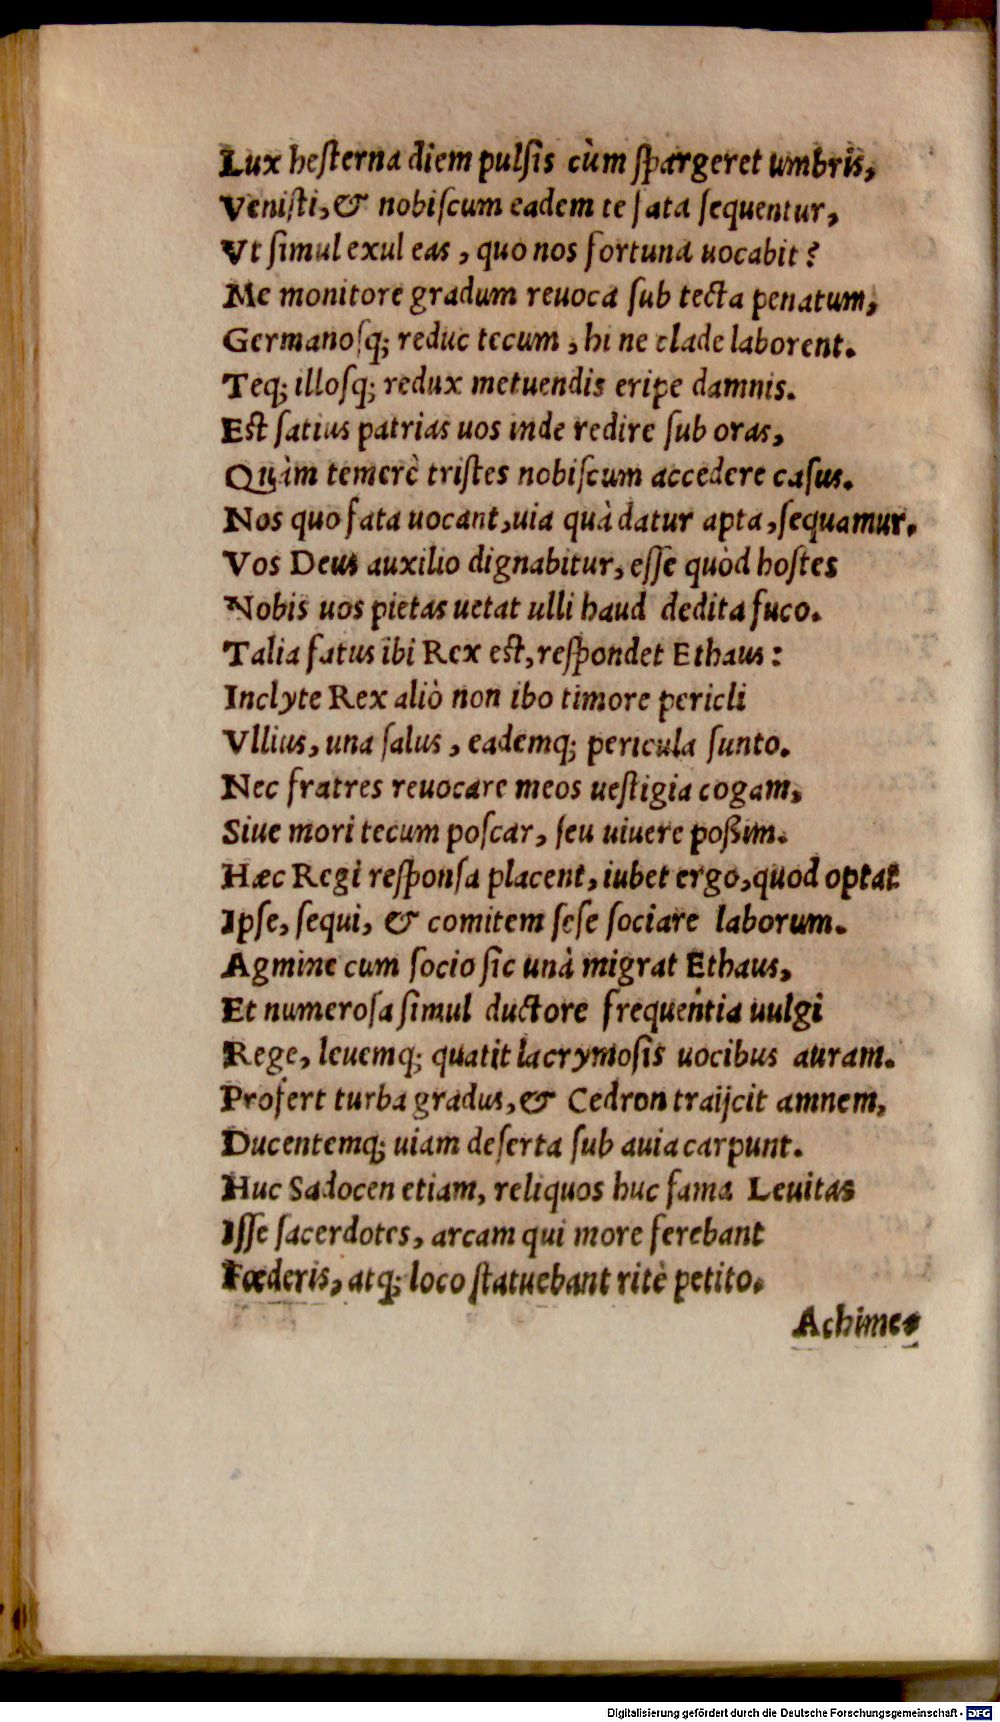 Lux hesterna diem pulsis cùm spargeret umbris,
Venisti, & nobiscum eadem te fata sequentur,
Vt simul exul eas, quo nos fortuna uocabit?
Me monitore gradum reuoca sub tecta penatum,
Germanosq; reduc tecum, hi ne clade laborent.
Teq; illosq; redux metuendis eripe damnis.
Est satius patrias uos inde redire sub oras,
Quàm temerè tristes nobiscum accedere casus.
Nos quo fata uocant, uia quà datur apta, sequamur.
Vos Deus auxilio dignabitur, esse quòd hostes
Nobis uos pietas uetat ulli haud dedita fuco.
Talia fatus ibi Rex est, respondet Ethaus:
Inclyte Rex aliò non ibo timore pericli
Vllius, una salus, eademq; pericula sunto.
Nec fratres reuocare meos uestigia cogam,
Siue mori tecum poscar, seu uiuere poßim.
Hæc Regi responsa placent, iubet ergo, quod optat
Ipse, sequi, & comitem sese sociare laborum.
Agmine cum socio sic unà migrat Ethaus,
Et numerosa simul ductore frequentia uulgi
Rege, leuemq; quatit lacrymosis uocibus auram.
Profert turba gradus, & Cedron traijcit amnem,
Ducentemq; uiam deserta sub auia carpunt.
Huc Sadocen etiam, reliquos huc fama Leuitas
Isse sacerdotes, arcam qui more ferebant
Fœderis, atq; loco statuebant ritè petito.
Achime-
Digitalisierung gefördert durch die Deutsche Forschungsgemeinschaft - DFG